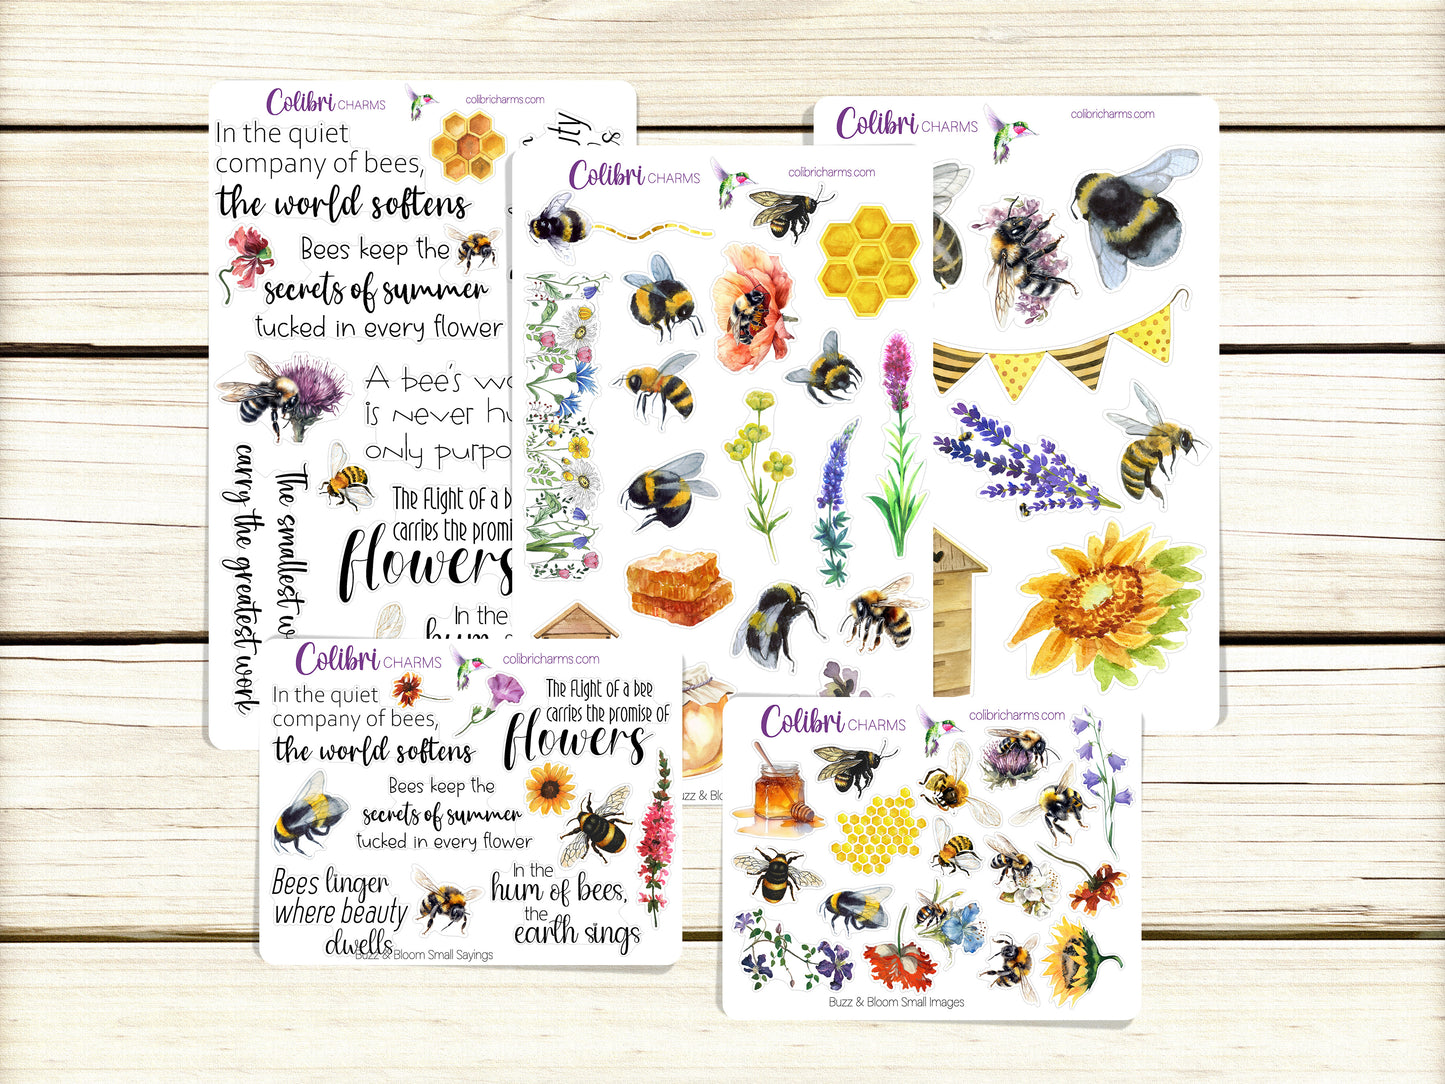 Colibri CHARMS
colibricharms.com
In the quiet
company of bees,
the world softens
Bees keep the
secrets of summer
tucked in every flower
A bee's
is never
only
The flight of a
carries the
flowers
In the
hum
The smallest
carry the greatest work
Colibri CHARMS
colibricharms.com
Colibri CHARMS
colibricharms.com
Colibri CHARMS
colibricharms.com
In the quiet
company of bees,
the world softens
The flight of a bee
carries the promise of
flowers
Bees keep the
secrets of summer
tucked in every flower
Bees linger
where beauty
dwells
In the
hum of bees,
the
earth sings
Buzz & Bloom Small Sayings
Colibri CHARMS
colibricharms.com
Buzz & Bloom Small Images